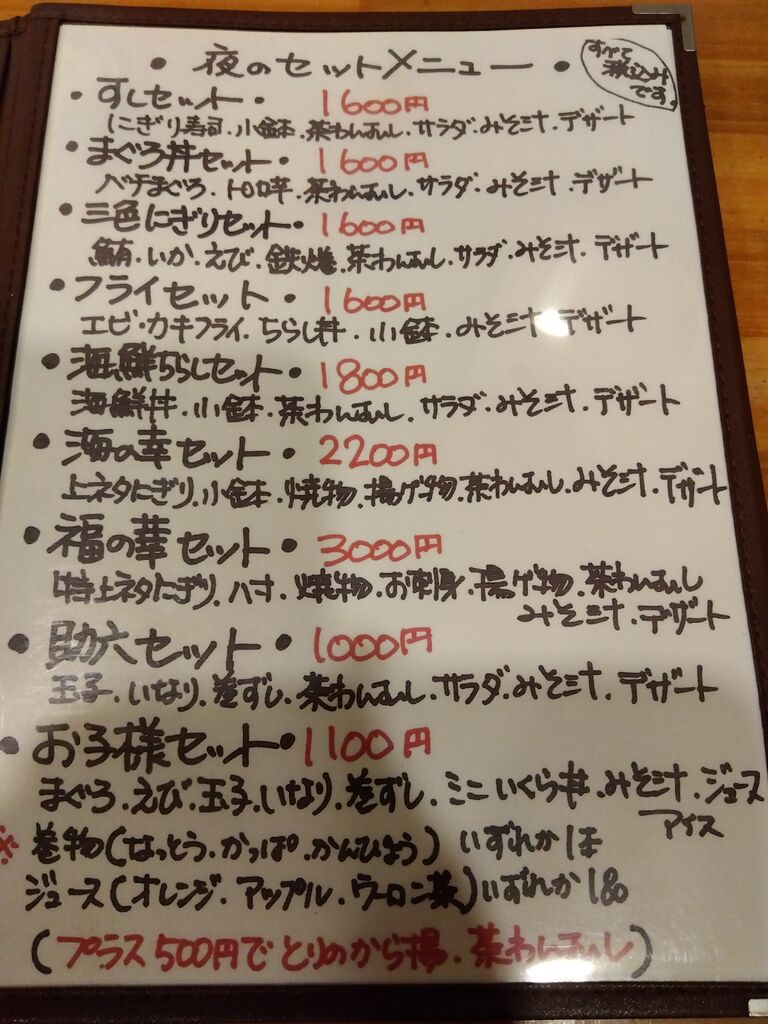 ・夜のセットメニュー・
すべて
税込み
です。
・すしセット・ 1600円
にぎり寿司.小鉢.茶わんむし.サラダ.みそ汁.デザート
・まぐろ丼セット・ 1600円
バチまぐろ.トロロ芋.茶わんむし.サラダ.みそ汁.デザート
・三色にぎりセット・ 1600円
鮪.いか.えび.鉄火巻.茶わんむし.サラダ.みそ汁.デザート
・フライセット・ 1600円
エビ・カキフライ.ちらし丼.小鉢.みそ汁.デザート
・海鮮ちらしセット・ 1800円
海鮮丼.小鉢.茶わんむし.サラダ.みそ汁.デザート
・海の幸セット・ 2200円
上ネタにぎり.小鉢.焼物.揚げ物.茶わんむし.みそ汁.デザート
・福の華セット・ 3000円
特上ネタにぎり.八寸.焼物.お刺身.揚げ物.茶わんむし
みそ汁.デザート
・助六セット・ 1000円
玉子.いなり.巻ずし.茶わんむし.サラダ.みそ汁.デザート
・お子様セット・ 1100円
まぐろ.えび.玉子.いなり.巻ずし.ミニいくら丼.みそ汁.ジュース
アイス
※巻物(なっとう.かっぱ.かんぴょう)いずれか1本
ジュース(オレンジ.アップル.ウーロン茶)いずれか1品
(プラス500円でとりのから揚.茶わんむし)